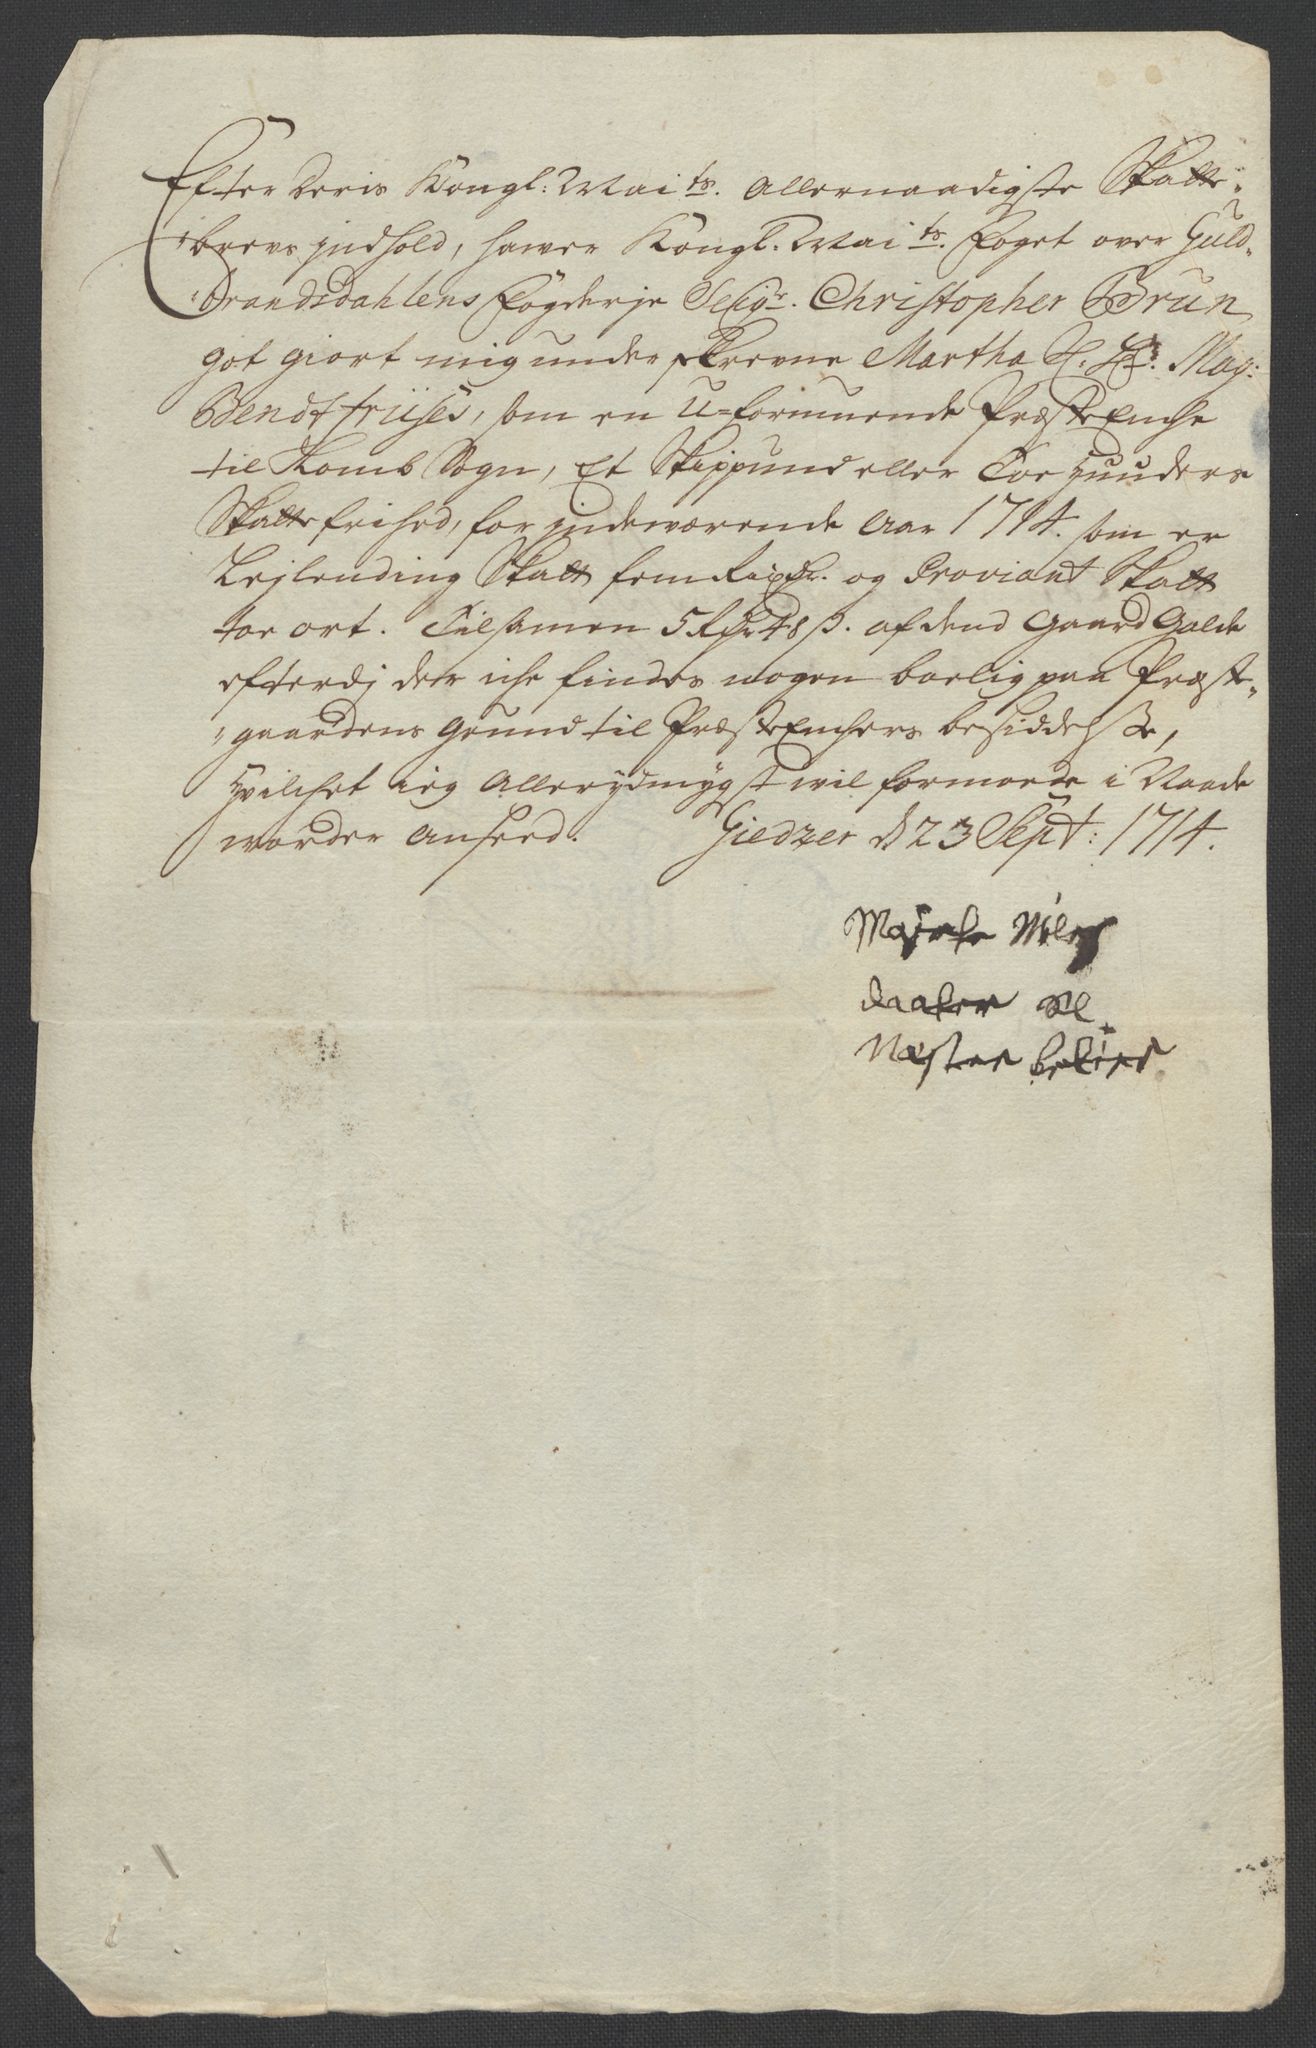 Efter Deris Kongl: Maits. Allernaadigste Skatte-
brevs jndhold, hawer Kongl. Maits. Foget over Guld-
brandsdahlens Fogderje Seigr. Christopher Brun
got giort mig underskrevne Martha Mag:
Bendt friises, som en U-formuende PræsteEncke
til Lomb Sogn, Et Skippund eller Toe Huuders
Skatte frihed, for jndeværende Aar 1714. som er
Lejlending Skatt fem Rixdr. og Proviant Skatt
toe ort. Tilsamen 5 Rdr 48 s. af dend Gaard Galde
efterdj der iche findes nogen boelig paa Præste-
gaardens Grund til PræsteEnchers besiddelsse,
Hvilchet ieg Allerydmygst wil formoede i Naade
worder anseed. Giedzer d 23 Sept: 1714.
Niels
daater Sl.